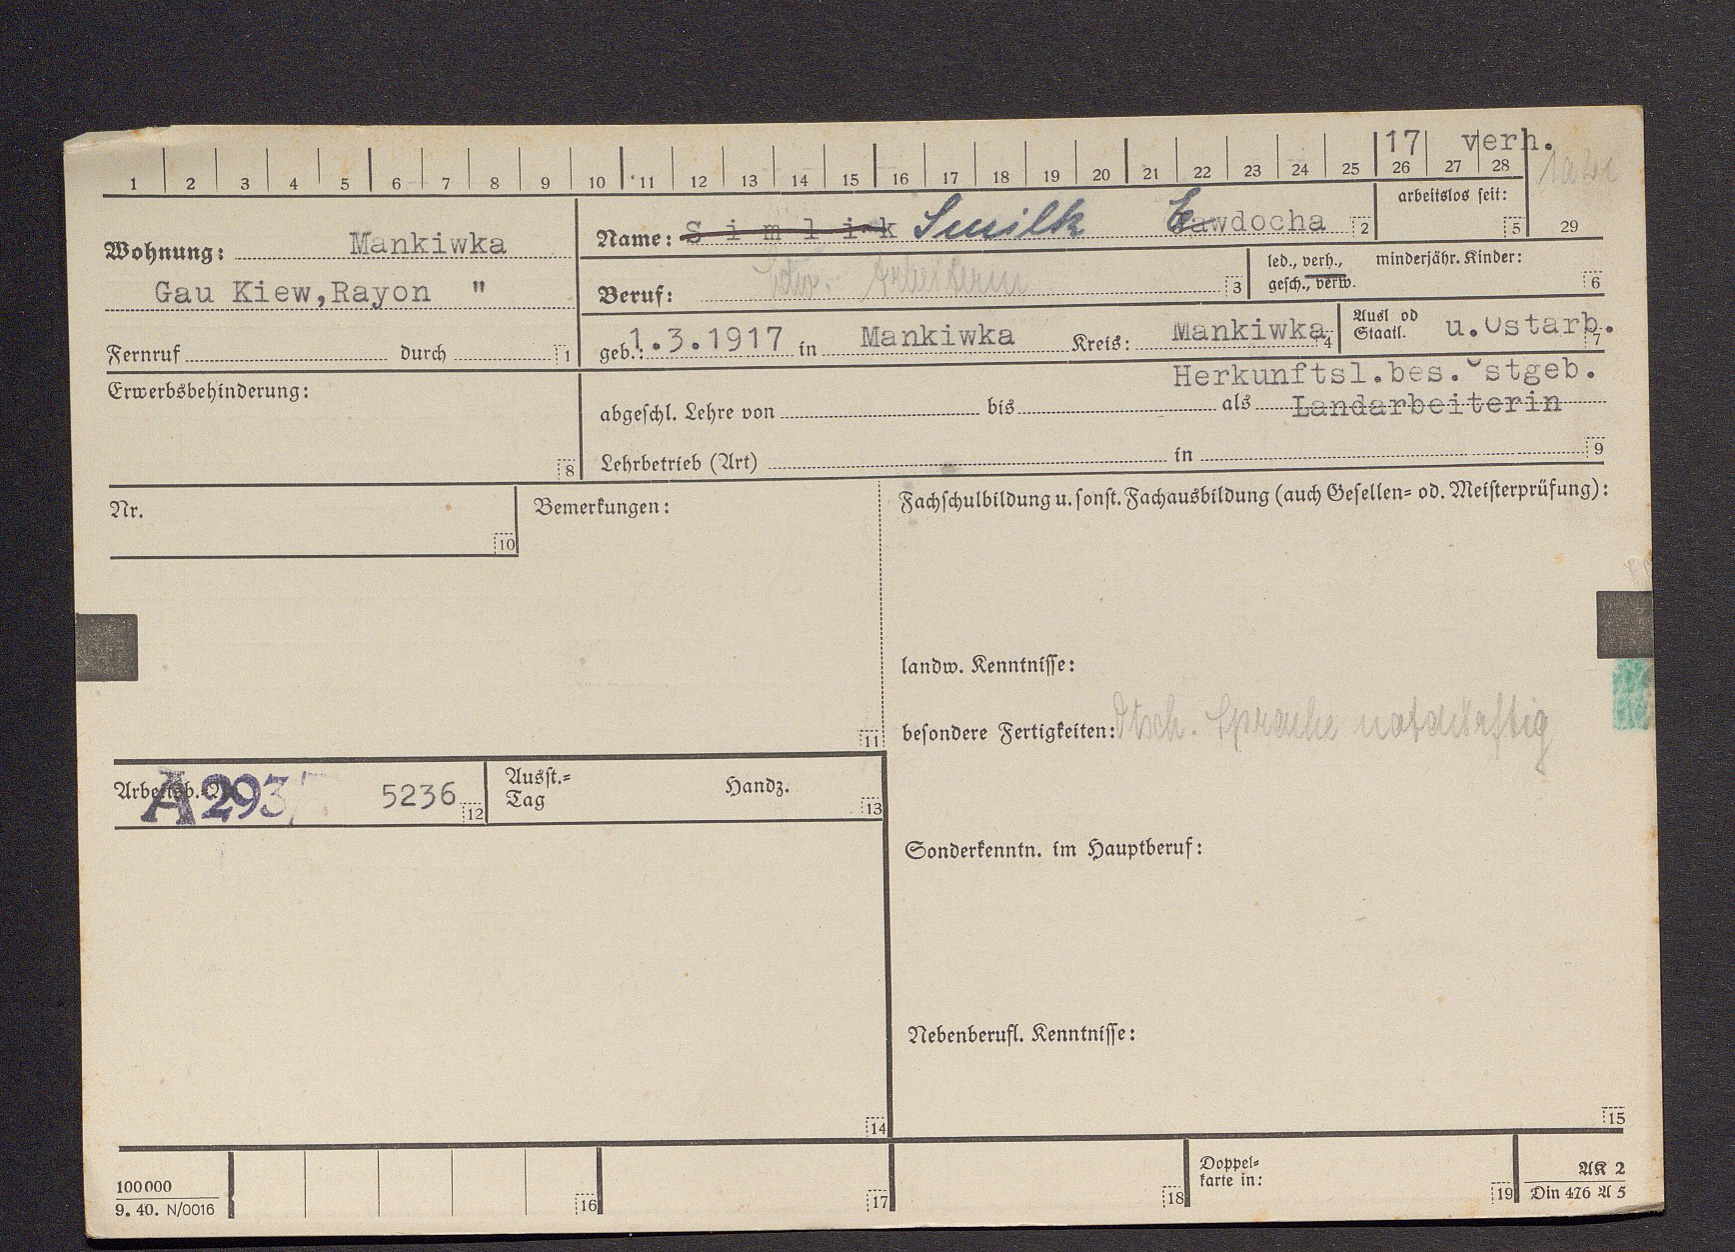 17 verh.
1 2 3 4 5 6 7 8 9 10 11 12 13 14 15 16 17 18 19 20 21 22 23 24 25 26 27 28
arbeitslos seit:
5 29
Wohnung: Mankiwka
Gau Kiew,Rayon "
Fernruf durch 1
Name: S i m l i k Smilk Eawdocha 2
Beruf: Ldw. Arbeiterin 3
led., verh., minderjähr. Kinder:
gesch., verw. 6
geb.: 1.3.1917 in Mankiwka Kreis: Mankiwka 4
Ausl od
Staatl. u.Ostarb. 7
Erwerbsbehinderung:
8
Herkunftsl.bes.Ostgeb.
abgeschl. Lehre von bis als Landarbeiterin
Lehrbetrieb (Art) in 9
Nr.
10
Bemerkungen:
11
Fachschulbildung u. sonst. Fachausbildung (auch Gesellen- od. Meisterprüfung):
landw. Kenntnisse:
besondere Fertigkeiten: Dtsch. Sprache notdürftig
Arbeitsb.- A 293 5236 12
Ausst.-
Tag Handz. 13
Sonderkenntn. im Hauptberuf:
Nebenberufl. Kenntnisse:
14
15
100000
9. 40. N/0016
16 17 18
Doppel-
karte in: 19
AK 2
Din 476 A 5